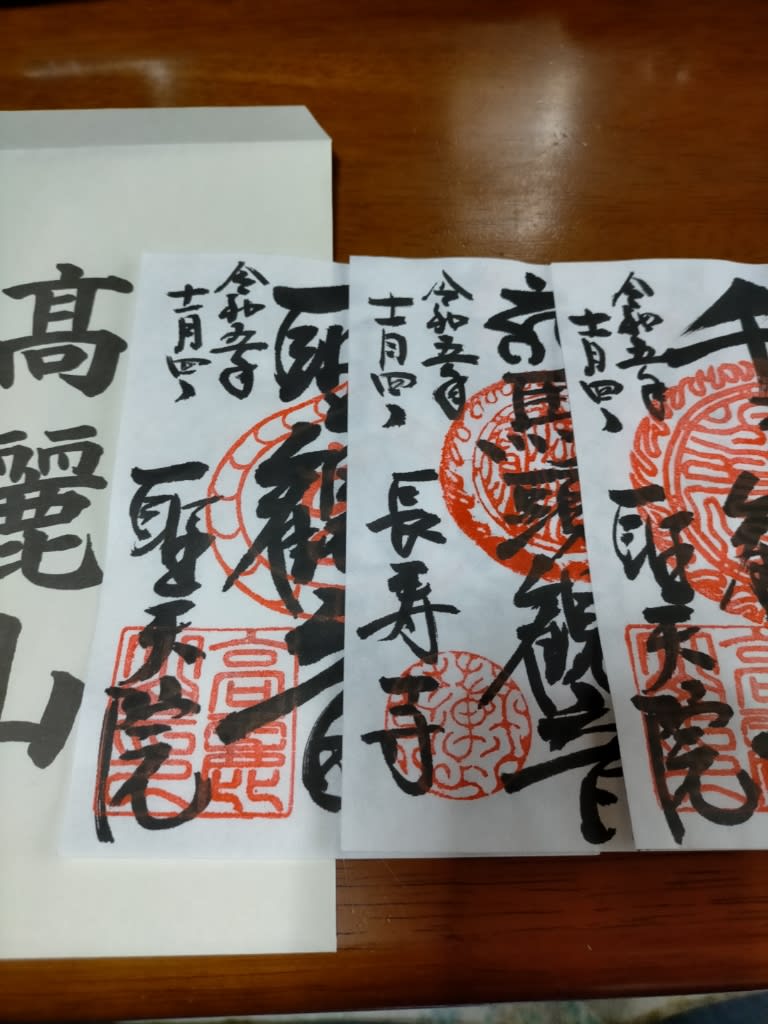 髙麗山
聖観音
令和五年
十一月四日
聖天院
高麗
馬頭観音
令和五年
十一月四日
長寿寺
千
観
令和五年
十一月四日
聖天院